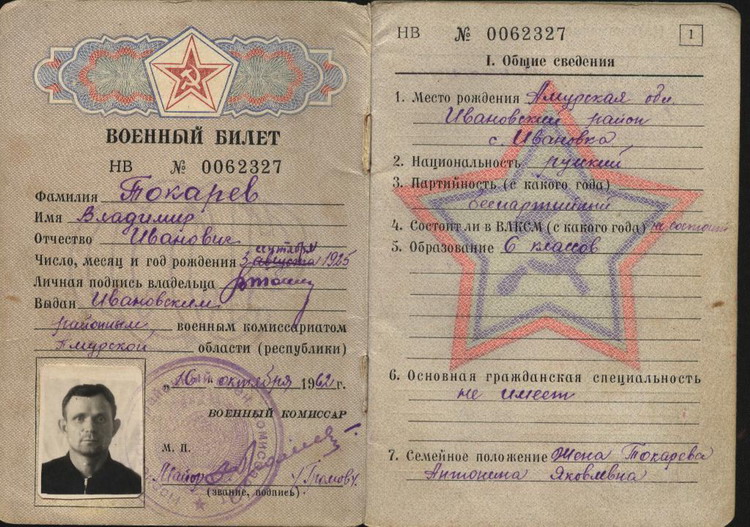 ВОЕННЫЙ БИЛЕТ
НВ № 0062327
Фамилия Токарев
Имя Владимир
Отчество Иванович
сентября
Число, месяц и год рождения 5 августа 1925
Личная подпись владельца
Выдан Ивановским
районным военным комиссариатом
Амурской области (республики)
"16" октября 1962 г.
ВОЕННЫЙ КОМИССАР
М. П.
Майор
(звание, подпись)
НВ № 0062327
1
I. Общие сведения
1. Место рождения Амурская обл.
Ивановский район
с. Ивановка
2. Национальность русский
3. Партийность (с какого года)
беспартийный
4. Состоит ли в ВЛКСМ (с какого года) не состоит
5. Образование 6 классов
6. Основная гражданская специальность
не имеет
7. Семейное положение Жена Токарева
Антонина Яковлевна